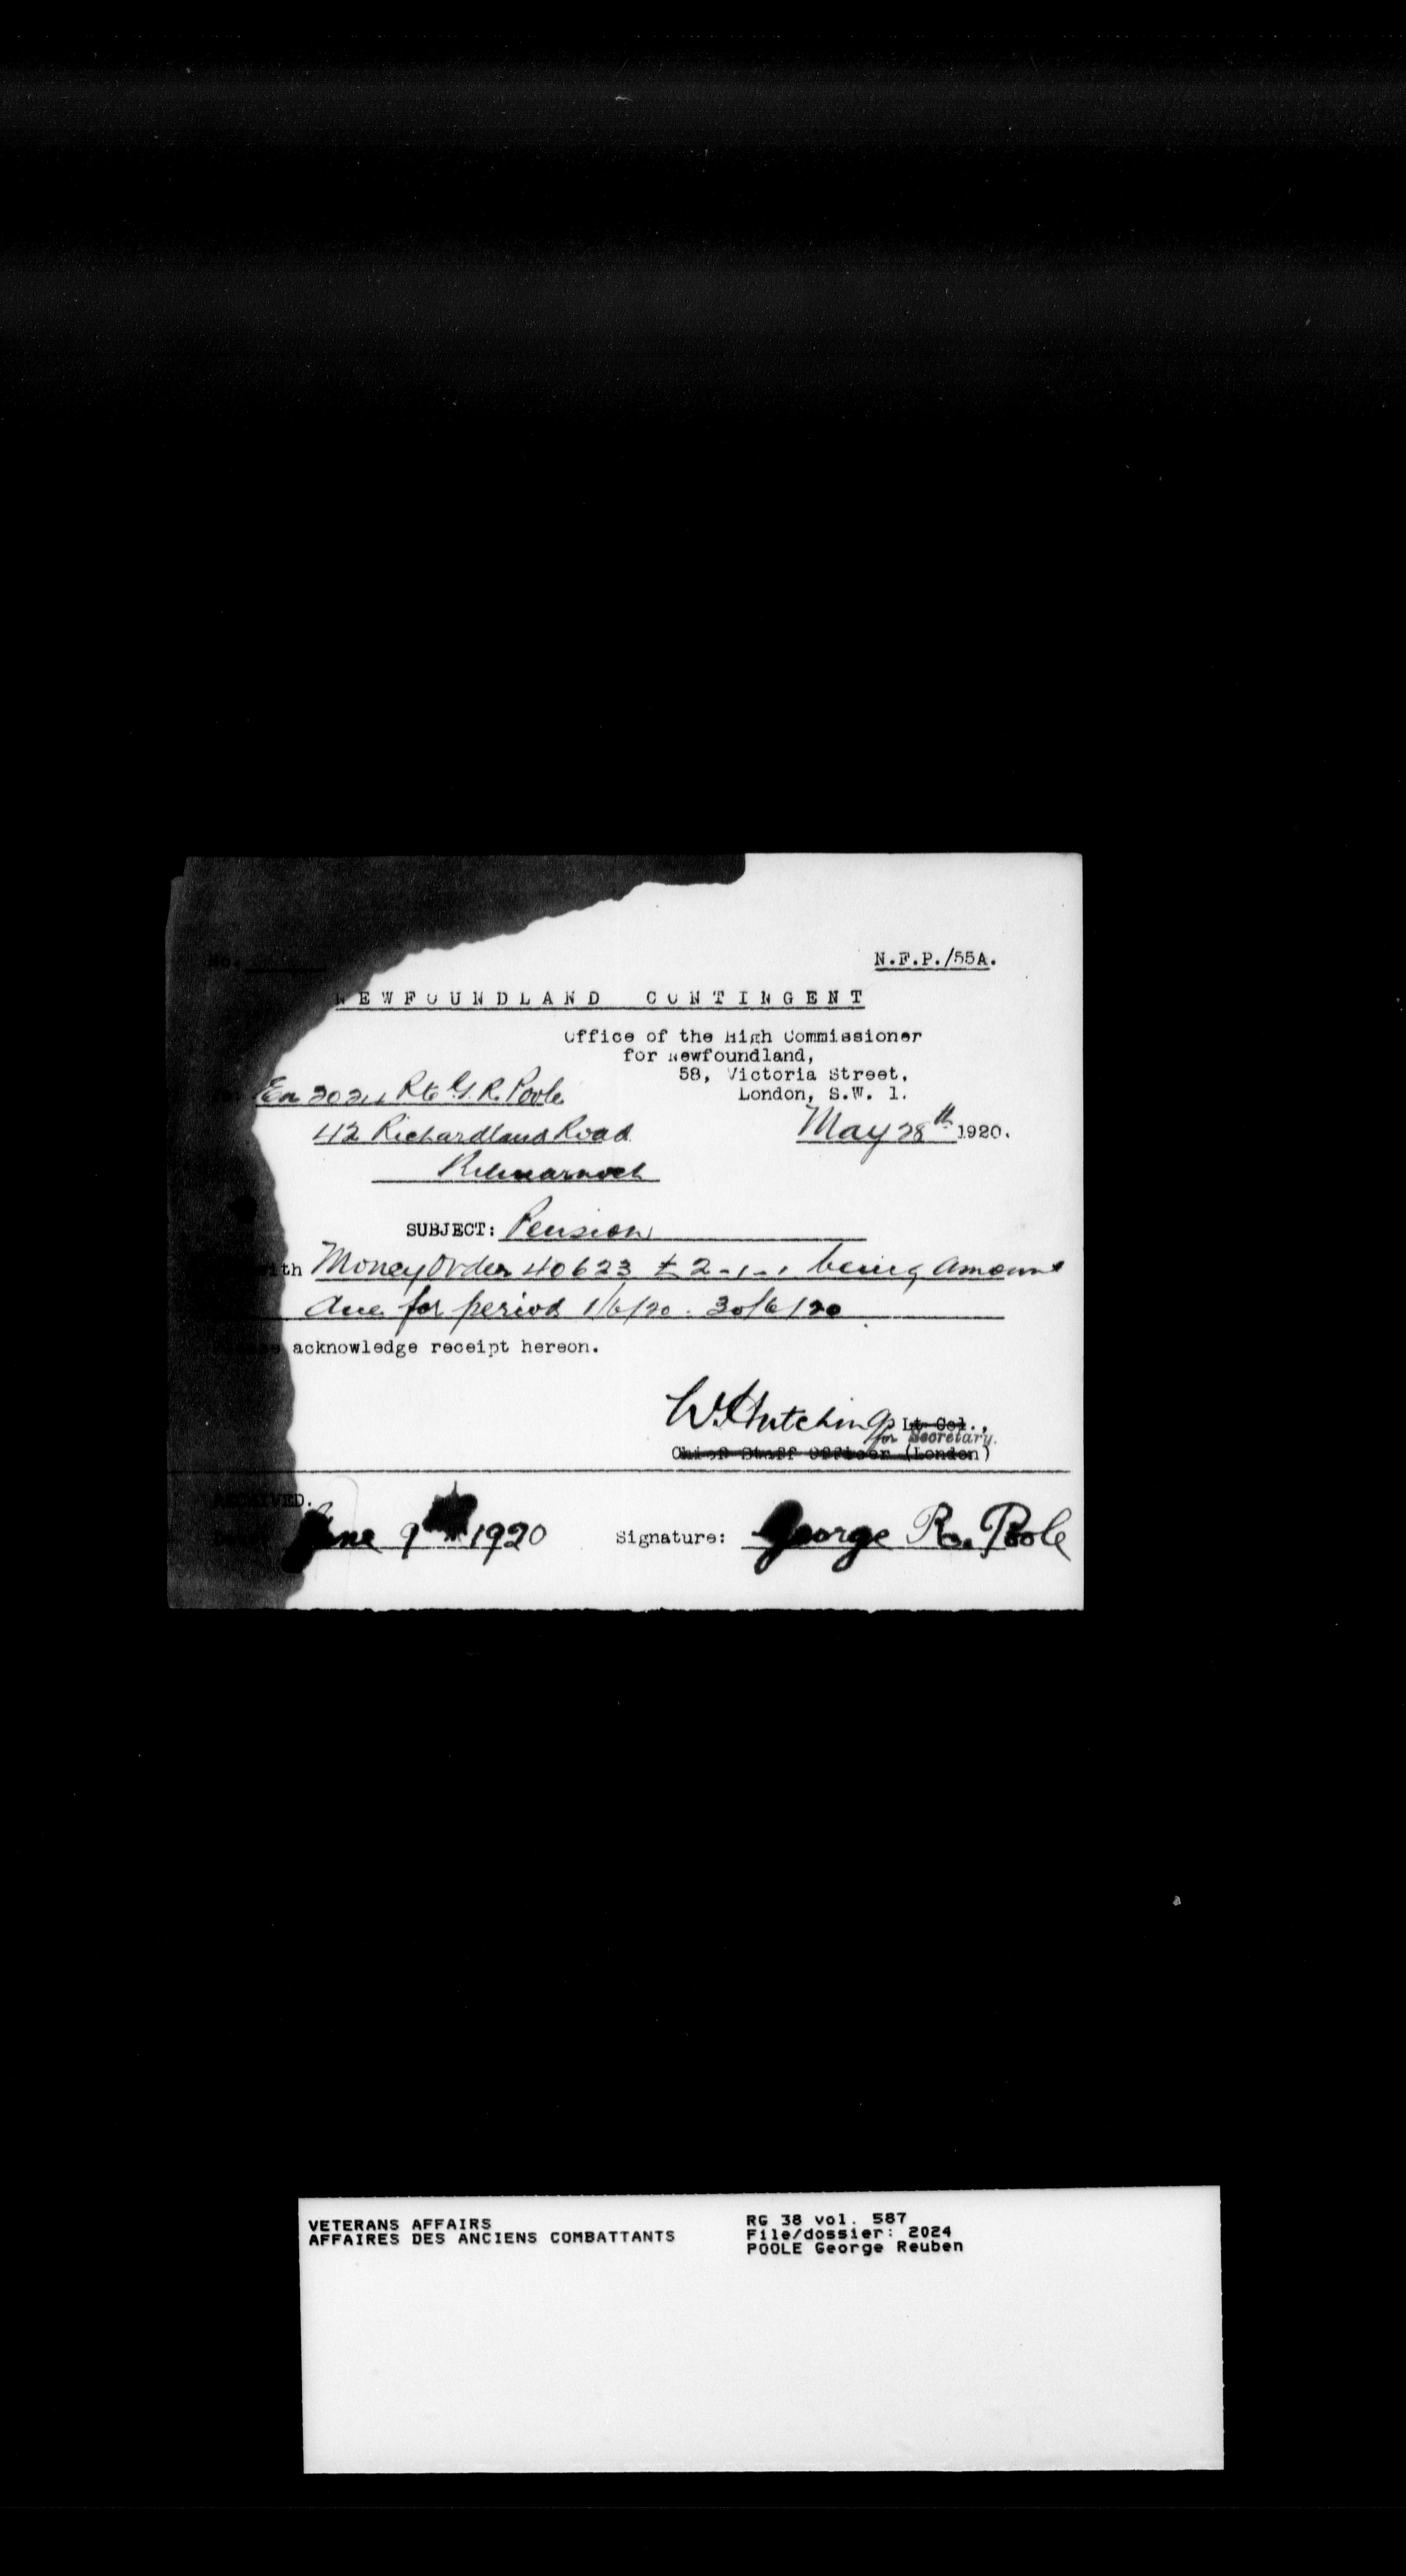 No.
N.F.P./55A.
NEWFOUNDLAND CONTINGENT
Office of the High Commissioner
for Newfoundland,
58, Victoria Street,
London, S.W. 1.
Ex 2024 Pte G. R. Poole
42 Richardland Road
May 28th 1920.
Kilmarnock
SUBJECT: Pension
with Money Order 40623 £ 2-1-1 being amount
due for period 1/6/20 - 30/6/20
acknowledge receipt hereon.
W. Hutchings Lt Col.,
for Secretary.
Chief Staff Officer (London)
RECEIVED.
June 9th 1920 Signature: George R. Poole
VETERANS AFFAIRS
AFFAIRES DES ANCIENS COMBATTANTS
RG 38 vol. 587
File/dossier: 2024
POOLE George Reuben